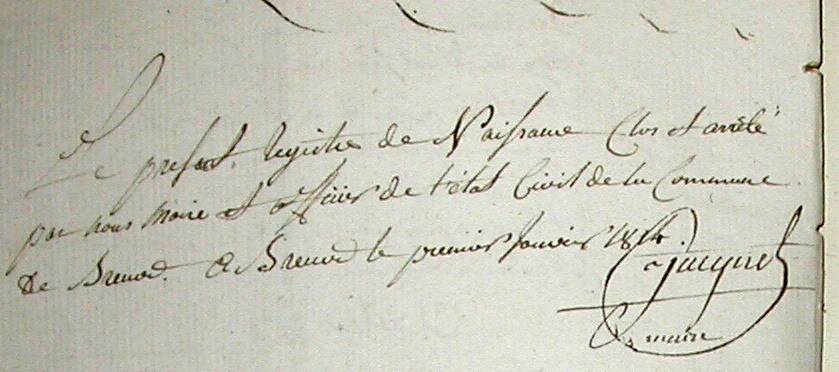 Le present Registre de Naissance Clos et arrêté
par nous Maire et officier de l'état Civil de la Commune
de Brenod. a Brenod le premier Janvier 1814.
Jacquet
maire